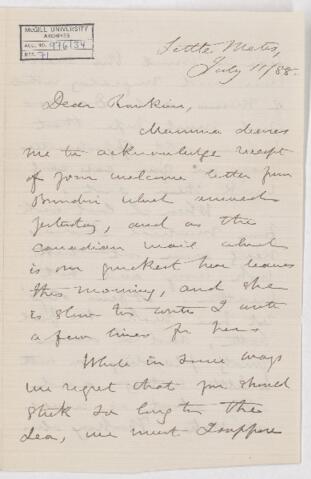 McGILL UNIVERSITY
ARCHIVES
ACC. NO. 976/34
REF. 71
Little Metis,
July 11/88.
Dear Rankine,
Mamma desires
me to acknowledge receipt
of your welcome letter from
Brindisi which arrived
yesterday, and as the
Canadian mail which
is our quickest here leaves
this morning, and she
is slow to write I write
a few lines for her.
While in some ways
we regret that you should
stick so long to the
sea, we must I suppose